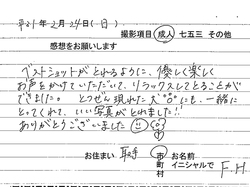 平成21年2月24日(日)
撮影項目 成人 七五三 その他
感想をお願いします
ベストショットがとれるように、優しく楽しく
お声をかけていただいて、リラックスしてとることが
できました。とつぜん現れた犬
にも、一緒に
とってくれて、いい写真がとれました!!
ありがとうございました
お住まい 取手 市町村 お名前 イニシャルで F.H